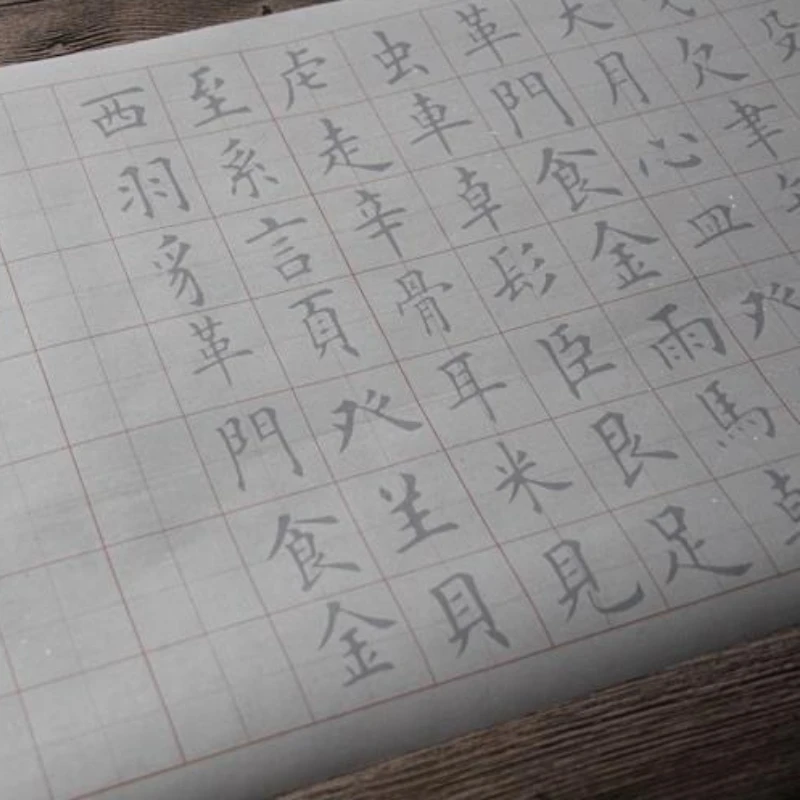 欠聿
大月心皿癶
革門食金雨馬
虫車卓髟臣艮足
虍走辛骨耳米見
至糸言頁癶𦍌貝
西羽豸革門食金